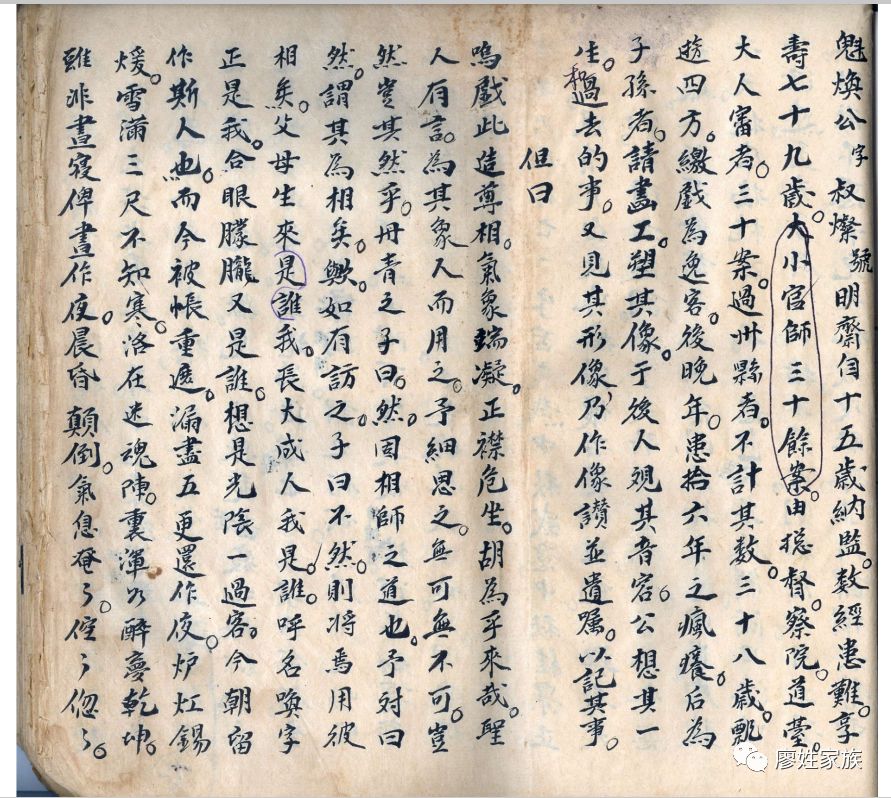 魁煥公字叔燦號明齋自十五歲納監。数經患難。享
壽七十九歲。大小官師三十餘案。由捴督。察院。道臺。
大人審者。三十案。過卅縣者。不計其数。三十八歲。
遊四方。繳戲為逸客。後晚年。患拾六年之瘋癢。后為
子孫者。請畵工。塑其像。于後人覌其音容。公想其一
生。和過去的事。又見其形像。乃作像讃並遺嘱。以記其事。
但曰
嗚戲此造尊相。氣象端凝。正襟危坐。胡為乎來哉。聖
人有言。為其象人而用之。予細思之。無可無不可。豈
然豈其然乎。丹青之子曰。然。因相師之道也。予対曰
然。謂其為相矣。歟。如有訪之子曰不然。則将焉用彼
相矣。父母生來是誰我。長大成人我是誰。呼名喚字
正是我。合眼朦朧又是誰。想是光陰一過客。今朝留
作斯人也。而今被帳重遮。漏盡五更還作夜。炉灯錫
煖。雪滿三尺不知寒。洛在迷魂陣裏。渾如醉夢乾坤。
雖非晝寝俾晝作夜。晨昏顛倒。氣息奄々。倥々偬々。
廖姓家族